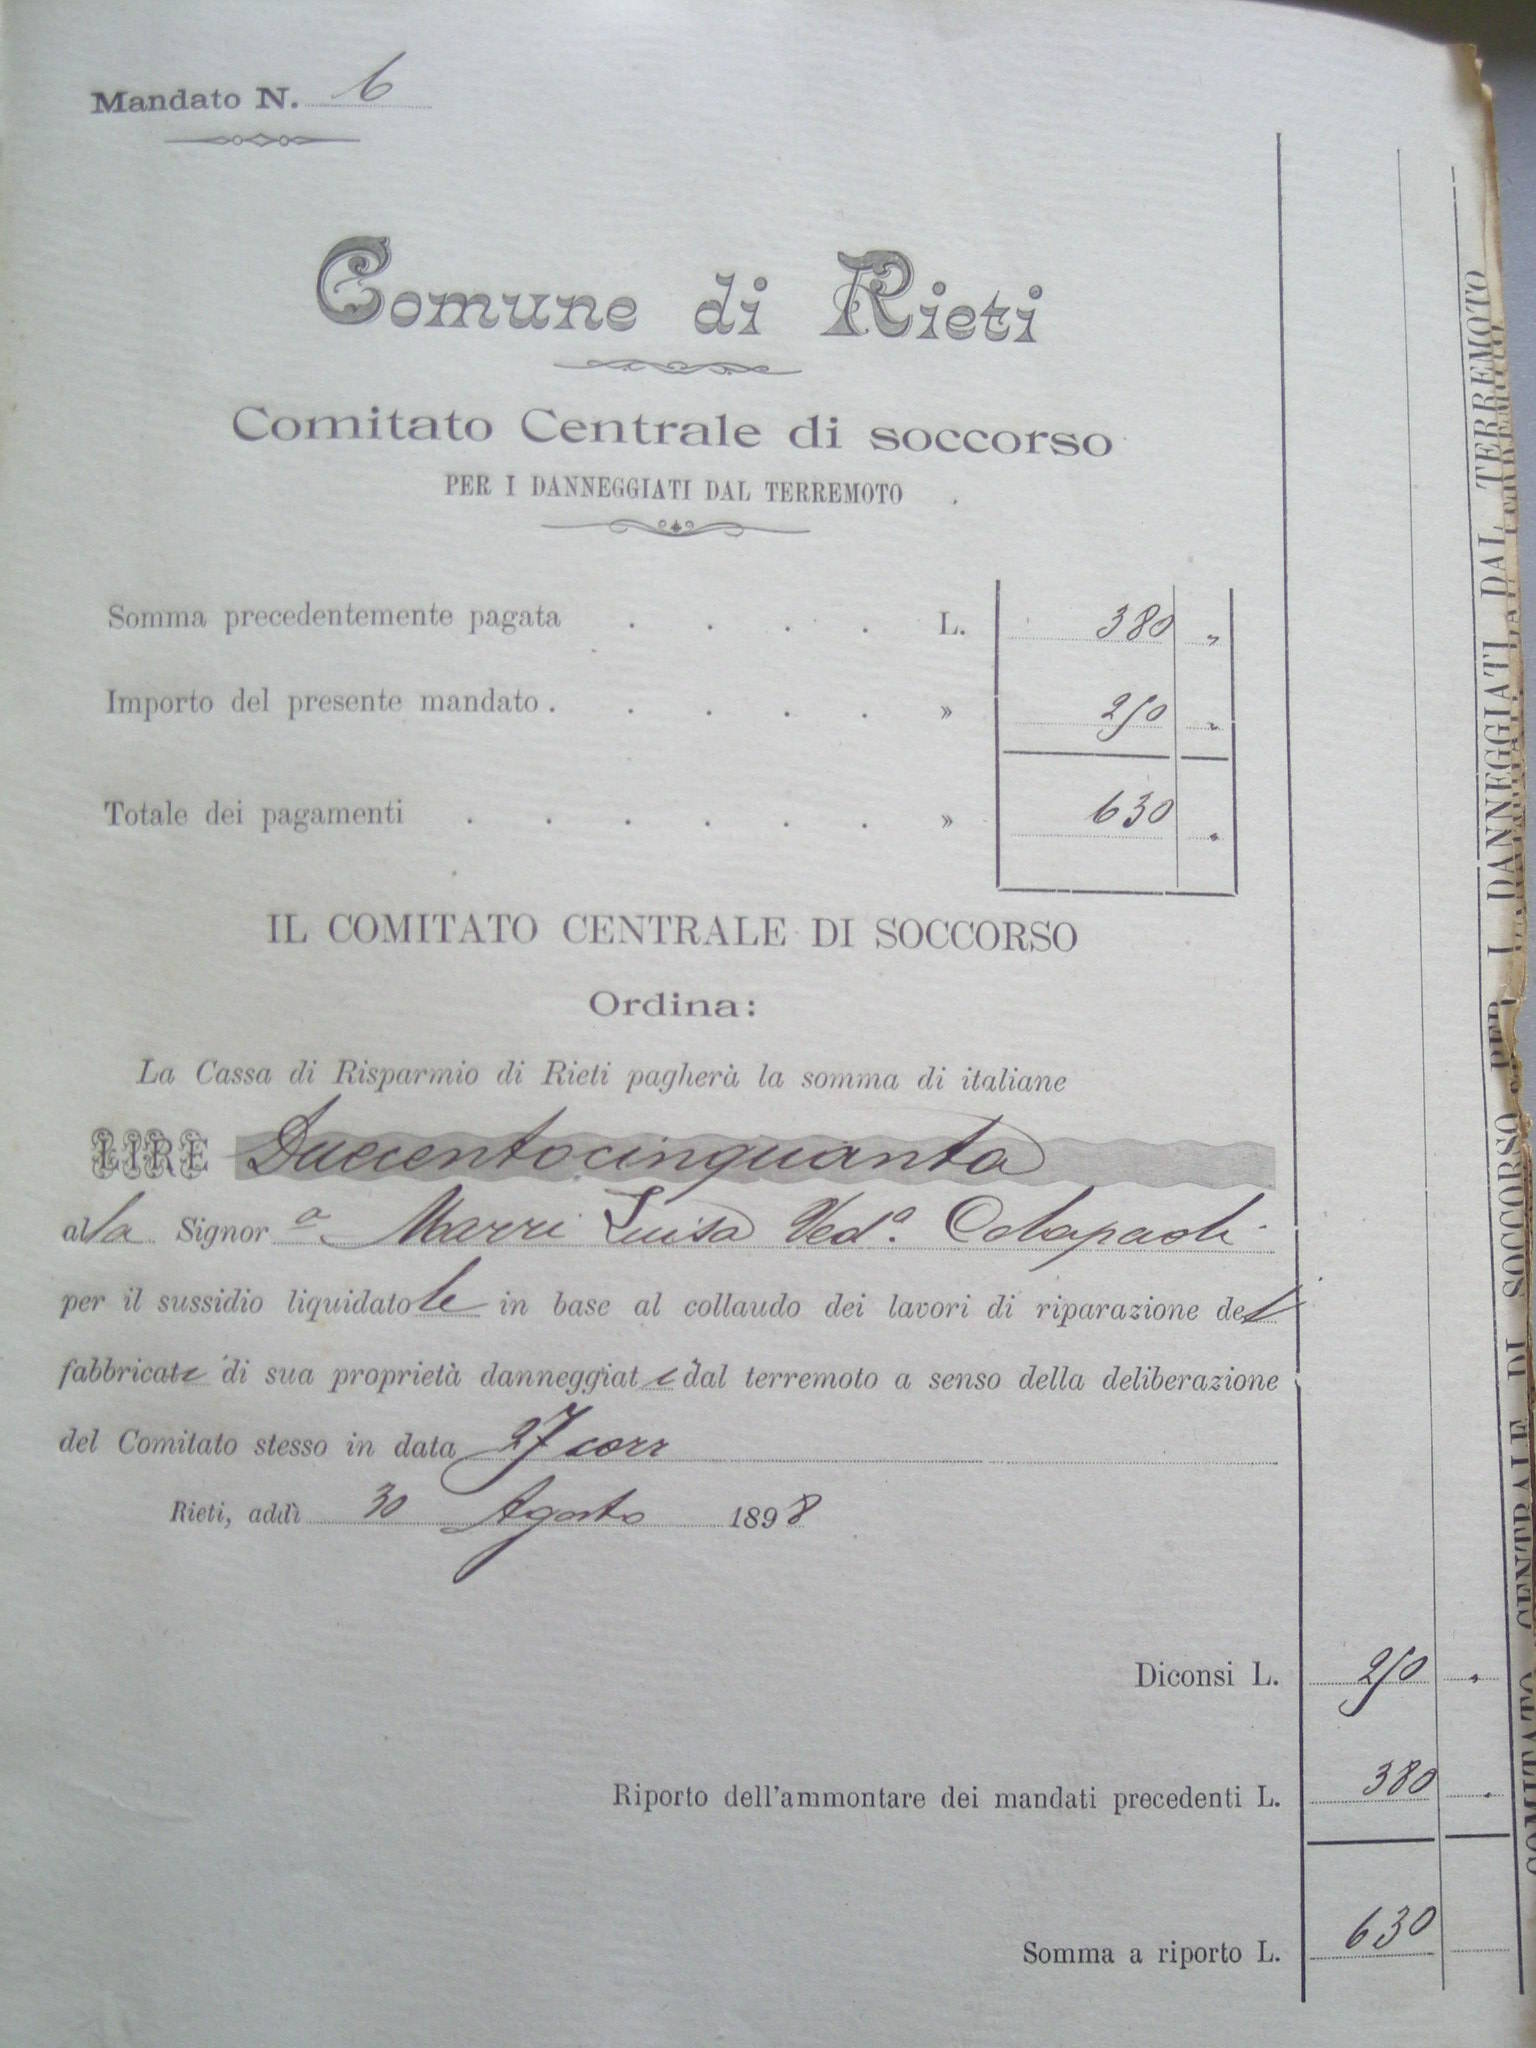 Mandato N. 6
Comune di Rieti
Comitato Centrale di soccorso
PER I DANNEGGIATI DAL TERREMOTO
Somma precedentemente pagata . . . . L. 380 „
Importo del presente mandato . . . . . » 250 „
Totale dei pagamenti . . . . . . » 630 „
IL COMITATO CENTRALE DI SOCCORSO
Ordina:
La Cassa di Risparmio di Rieti pagherà la somma di italiane
LIRE Duecentocinquanta
alla Signora Marri Luisa Ved.a Colapaoli
per il sussidio liquidatole in base al collaudo dei lavori di riparazione del
fabbricato di sua proprietà danneggiato dal terremoto a senso della deliberazione
del Comitato stesso in data 27 corr
Rieti, addì 30 Agosto 1898
Diconsi L. 250 „
Riporto dell'ammontare dei mandati precedenti L. 380 „
Somma a riporto L. 630
COMITATO CENTRALE DI SOCCORSO PER I DANNEGGIATI DAL TERREMOTO